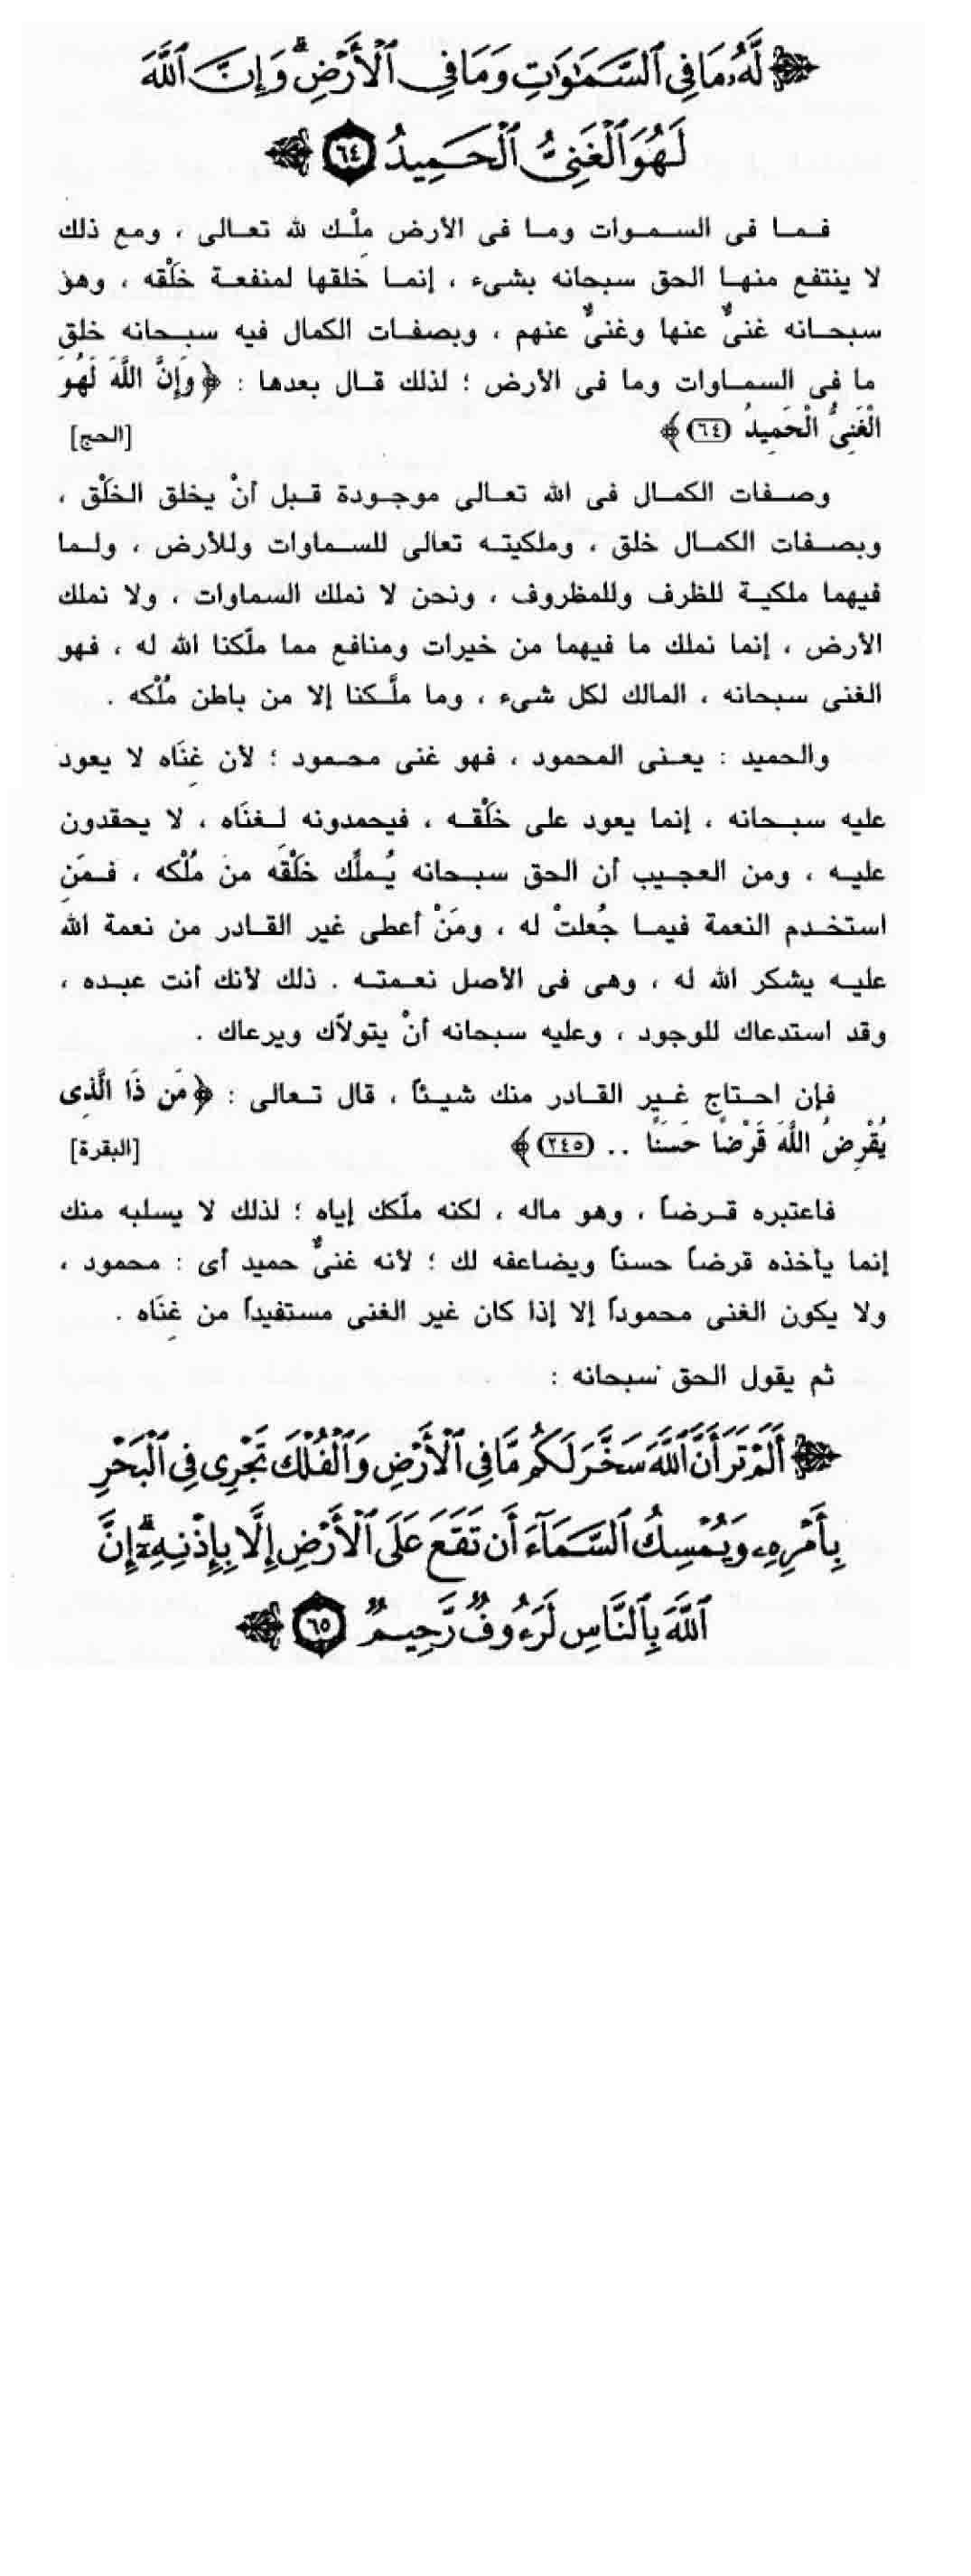 لَّهُۥ مَا فِي ٱلسَّمَٰوَٰتِ وَمَا فِي ٱلْأَرْضِ ۗ وَإِنَّ ٱللَّهَ
لَهُوَ ٱلْغَنِيُّ ٱلْحَمِيدُ ٦٤
فـمـا فى السـمـوات ومـا فى الأرض مِلْـك لله تعـالى ، ومع ذلك
لا ينتفع منهـا الحق سبحانه بشىء ، إنمـا خلقها لمنفعـة خَلْقه ، وهو
سبحـانه غنىٌّ عنها وغنىٌّ عنهم ، وبصفـات الكمال فيه سبـحانه خلق
ما فى السمـاوات وما فى الأرض ؛ لذلك قـال بعدها : ﴿ وَإِنَّ اللَّهَ لَهُوَ
الْغَنِىُّ الْحَمِيدُ (٦٤) ﴾ [الحج]
وصـفات الكمـال فى الله تعـالى موجـودة قـبل أنْ يخلق الخَلْق ،
وبصـفات الكمـال خلق ، وملكيتـه تعالى للسـماوات وللأرض ، ولـما
فيهما ملكيـة للظرف وللمظروف ، ونحن لا نملك السماوات ، ولا نملك
الأرض ، إنما نملك ما فيهما من خيرات ومنافع مما ملّكنا الله له ، فهو
الغنى سبحانه ، المالك لكل شىء ، وما ملَّـكنا إلا من باطن مُلْكه .
والـحميد : يعـنى المحمود ، فهو غنى محـمود ؛ لأن غِنَاه لا يعود
عليه سبـحانه ، إنما يعود على خَلْقـه ، فيحمدونه لـغِنَاه ، لا يحقدون
عليـه ، ومن العجـيب أن الحق سبـحانه يُـملِّك خَلْقَه من مُلْكه ، فـمَنِ
استخـدم النعمة فيمـا جُعلتْ له ، ومَنْ أعطى غير القـادر من نعمة الله
عليـه يشكر الله له ، وهى فى الأصل نعـمتـه . ذلك لأنك أنت عبـده ،
وقد استدعاك للوجود ، وعليه سبحانه أنْ يتولاّك ويرعاك .
فإن احـتاج غـير القـادر منك شيـئاً ، قال تـعالى : ﴿ مَن ذَا الَّذِى
يُقْرِضُ اللَّهَ قَرْضًا حَسَنًا .. (٢٤٥) ﴾ [البقرة]
فاعتبره قـرضاً ، وهو ماله ، لكنه ملّكك إياه ؛ لذلك لا يسلبه منك
إنما يأخذه قرضاً حسناً ويضاعفه لك ؛ لأنه غنىٌّ حميد أى : محمود ،
ولا يكون الغنى محموداً إلا إذا كان غير الغنى مستفيداً من غِنَاه .
ثم يقول الحق سبحانه :
أَلَمْ تَرَ أَنَّ ٱللَّهَ سَخَّرَ لَكُم مَّا فِي ٱلْأَرْضِ وَٱلْفُلْكَ تَجْرِي فِي ٱلْبَحْرِ
بِأَمْرِهِۦ وَيُمْسِكُ ٱلسَّمَآءَ أَن تَقَعَ عَلَى ٱلْأَرْضِ إِلَّا بِإِذْنِهِۦٓ ۗ إِنَّ
ٱللَّهَ بِٱلنَّاسِ لَرَءُوفٌ رَّحِيمٌ ٦٥